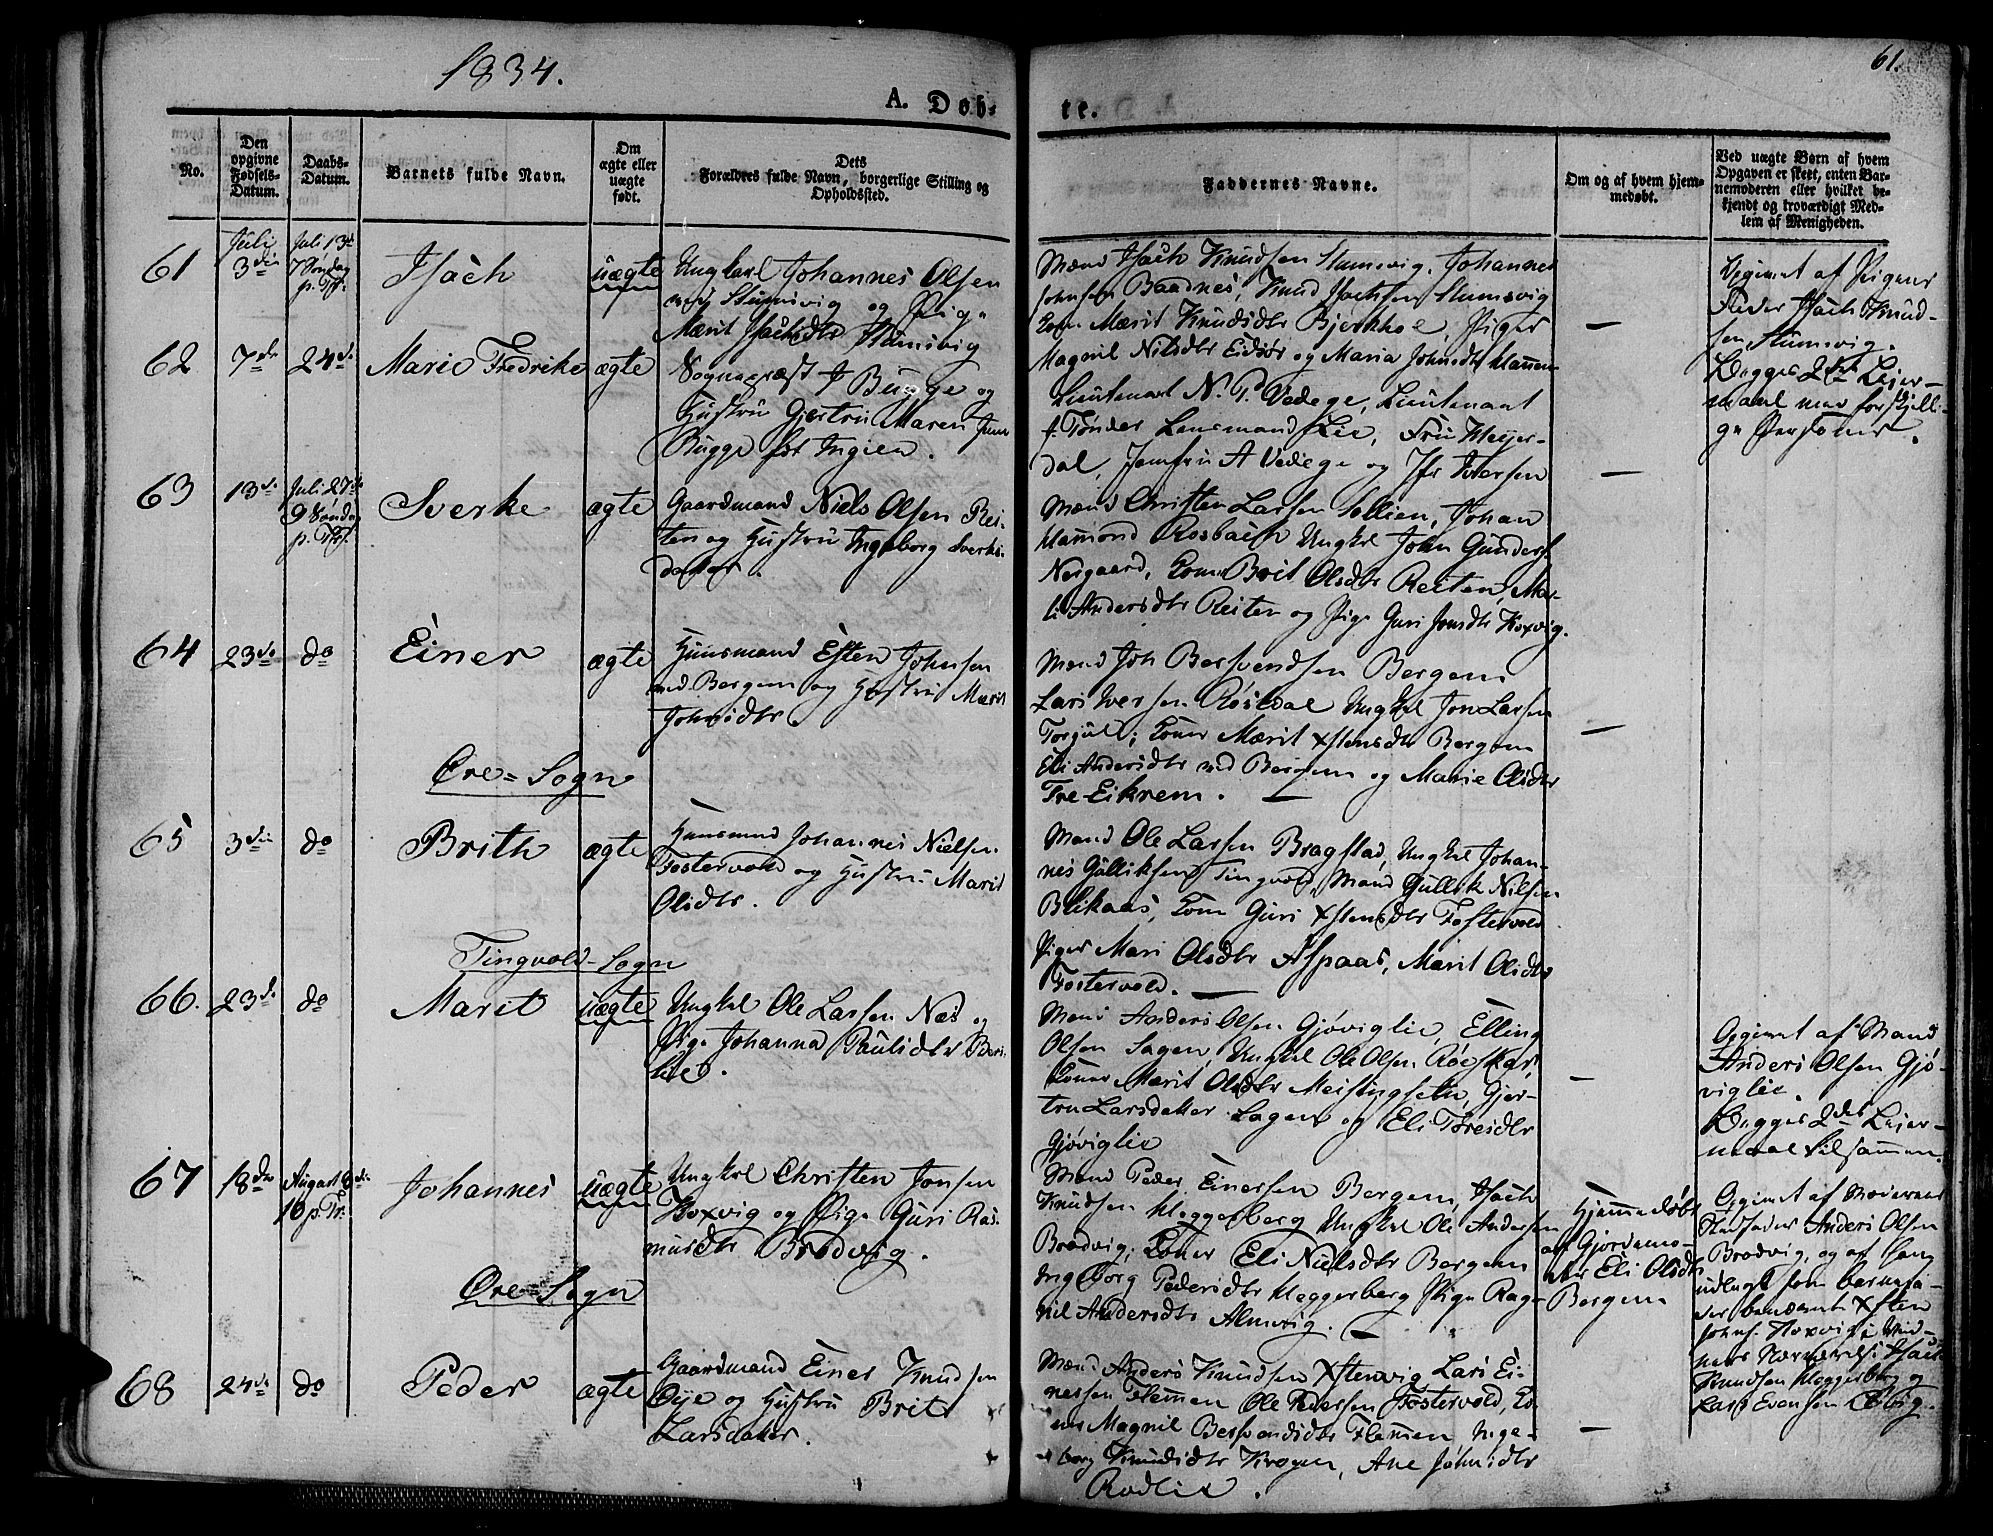 1834.
61.
A. Døb-
te.
No.
Den
opgivne
Fødsels-
Datum.
Daabs-
Datum.
Barnets fulde Navn.
Om
ægte eller
uægte
født.
Dets
Forældres fulde Navn, borgerlige Stilling og
Opholdssted.
Faddernes Navne.
Om og af hvem hjem-
medøbt.
Ved uægte Børn af hvem
Opgaven er skeet, enten Bar-
nemoderen eller hvilket be-
kjendt og troværdigt Med-
lem af Menigheden.
61
Juli
3die
Juli 13de
7 Søndag
p. Tr.
Isach
uægte
Ungkarl Johannes Olsen
Stumsvig og Pige
Marit Isachsdtr Stumsvig
Mænd Isach Knudsen Stumsvig, Johannes
Johnsen Baadnes, Knud Isachsen Stumsvig
Kone Marit Knudsdtr Bjerkhoe, Piger
Magnil Nilsdtr Eidsør og Maria Johnsdtr
—
Opgivet af Pigens
Fader Isach Knud-
sen Stumsvig.
Begges 2det Leier-
maal med forskjelli-
ge Personer.
62
7de
24de
Marie Fredrike
ægte
Sognepræst J Bugge og
Hustru Gjertru Maren
Bugge født Ingien.
Lieutenant N. P. Vedege, Lieutenant
f. Tønder Lensmand Lie, Fru Meyer-
dal, Jomfru A Vedege og Jfr Iversen
—
63
13de
Juli 27de
9 Søndag
p. Tr.
Sverke
ægte
Gaardmand Niels Olsen Rei-
ten og Hustru Ingeborg Sverks-
datter.
Mænd Christen Larsen Sollien, Johan
Hamond Rosbach Ungkl John Gunders
Norgaard, Kone Brit Olsdtr Reiten, Mar-
it Andersdtr Reiten og Pige Guri Jonsdtr Koxvig.
64
23de
do
Einer
ægte
Huusmand Esten Johnsen
ved Bergem og Hustru Marit
Johnsdtr.
Mænd Joh Bersvendsen Bergem
Lars Iversen Røsedal Ungkl Jon Larsen
Torjul; Koner Marit Xstensdtr Bergem
Eli Andersdtr ved Bergem og Marie Olsdtr
Tre-Eikrem.
—
Øre-Sogn
65
3die
do
Brith
ægte
Huusmand Johannes Nielsen
Fostervold og Hustru Marit
Olsdtr.
Mænd Ole Larsen Bragstad, Ungkl Johan-
nes Gulliksen Tingvold, Mand Gullik Nilsen
Blikaas, Kone Guri Xstensdtr Fostervold
Piger Mari Olsdtr Aspaas, Marit Olsdtr
Fostervold.
Tingvold-Sogn
66.
23de
do
Maret
uægte
Ungkl Ole Larsen Næs og
Pige Johanna Paulsdtr
lie.
Mænd Anders Olsen Gjøviglie, Elling
Olsen Sagen, Ungkl Ole Olsen Røeskar,
Koner Marit Olsdtr Meisingsetn, Gjer-
tru Larsdatter Sagen og Eli Toresdtr
Gjøviglie
—
Opgivet af Mand
Anders Olsen Gjø-
viglie.
Begges 2det Leier-
maal tilsammen.
67
18de
August 3die
10 p. Tr.
Johannes
uægte
Ungkl Christen Jonsen
Koxvig og Pige Guri Ras-
musdtr Brodvig.
Mænd Peder Einersen Bergem, Isach
Knudsen Meggerberg Ungkl Ole Andersen
Brodvig; Koner Eli Nielsdtr Bergem
Ingeborg Pedersdtr Meggerberg Pige Rag-
nil Andersdtr Almvig.
Hjemmedøbt
af Gjordemo-
der Eli Olsdtr
Bergem
Opgivet af Moderens
Stedfader Anders Olsen
Brodvig, og af hans
udlagt som barnefa-
der benævnt Xsten
Johns. Koxvig i Vid-
ners Nærværelse Isach
Knudsen Meggerberg og
Lars Evensen
Øre-Sogn
68
24de
do
Peder
ægte
Gaardmand Einer Knudsen
Øye og Hustru Brit
Larsdatter.
Mænd Anders Knudsen Xstenvig Lars Ei-
nersen Flemmen Ole Pedersen Fostervold, Ko-
ner Magnil Bersvendsdtr Flemmen Inge-
borg Knudsdtr Krogen, Ane Johnsdtr
Rødlie.
—